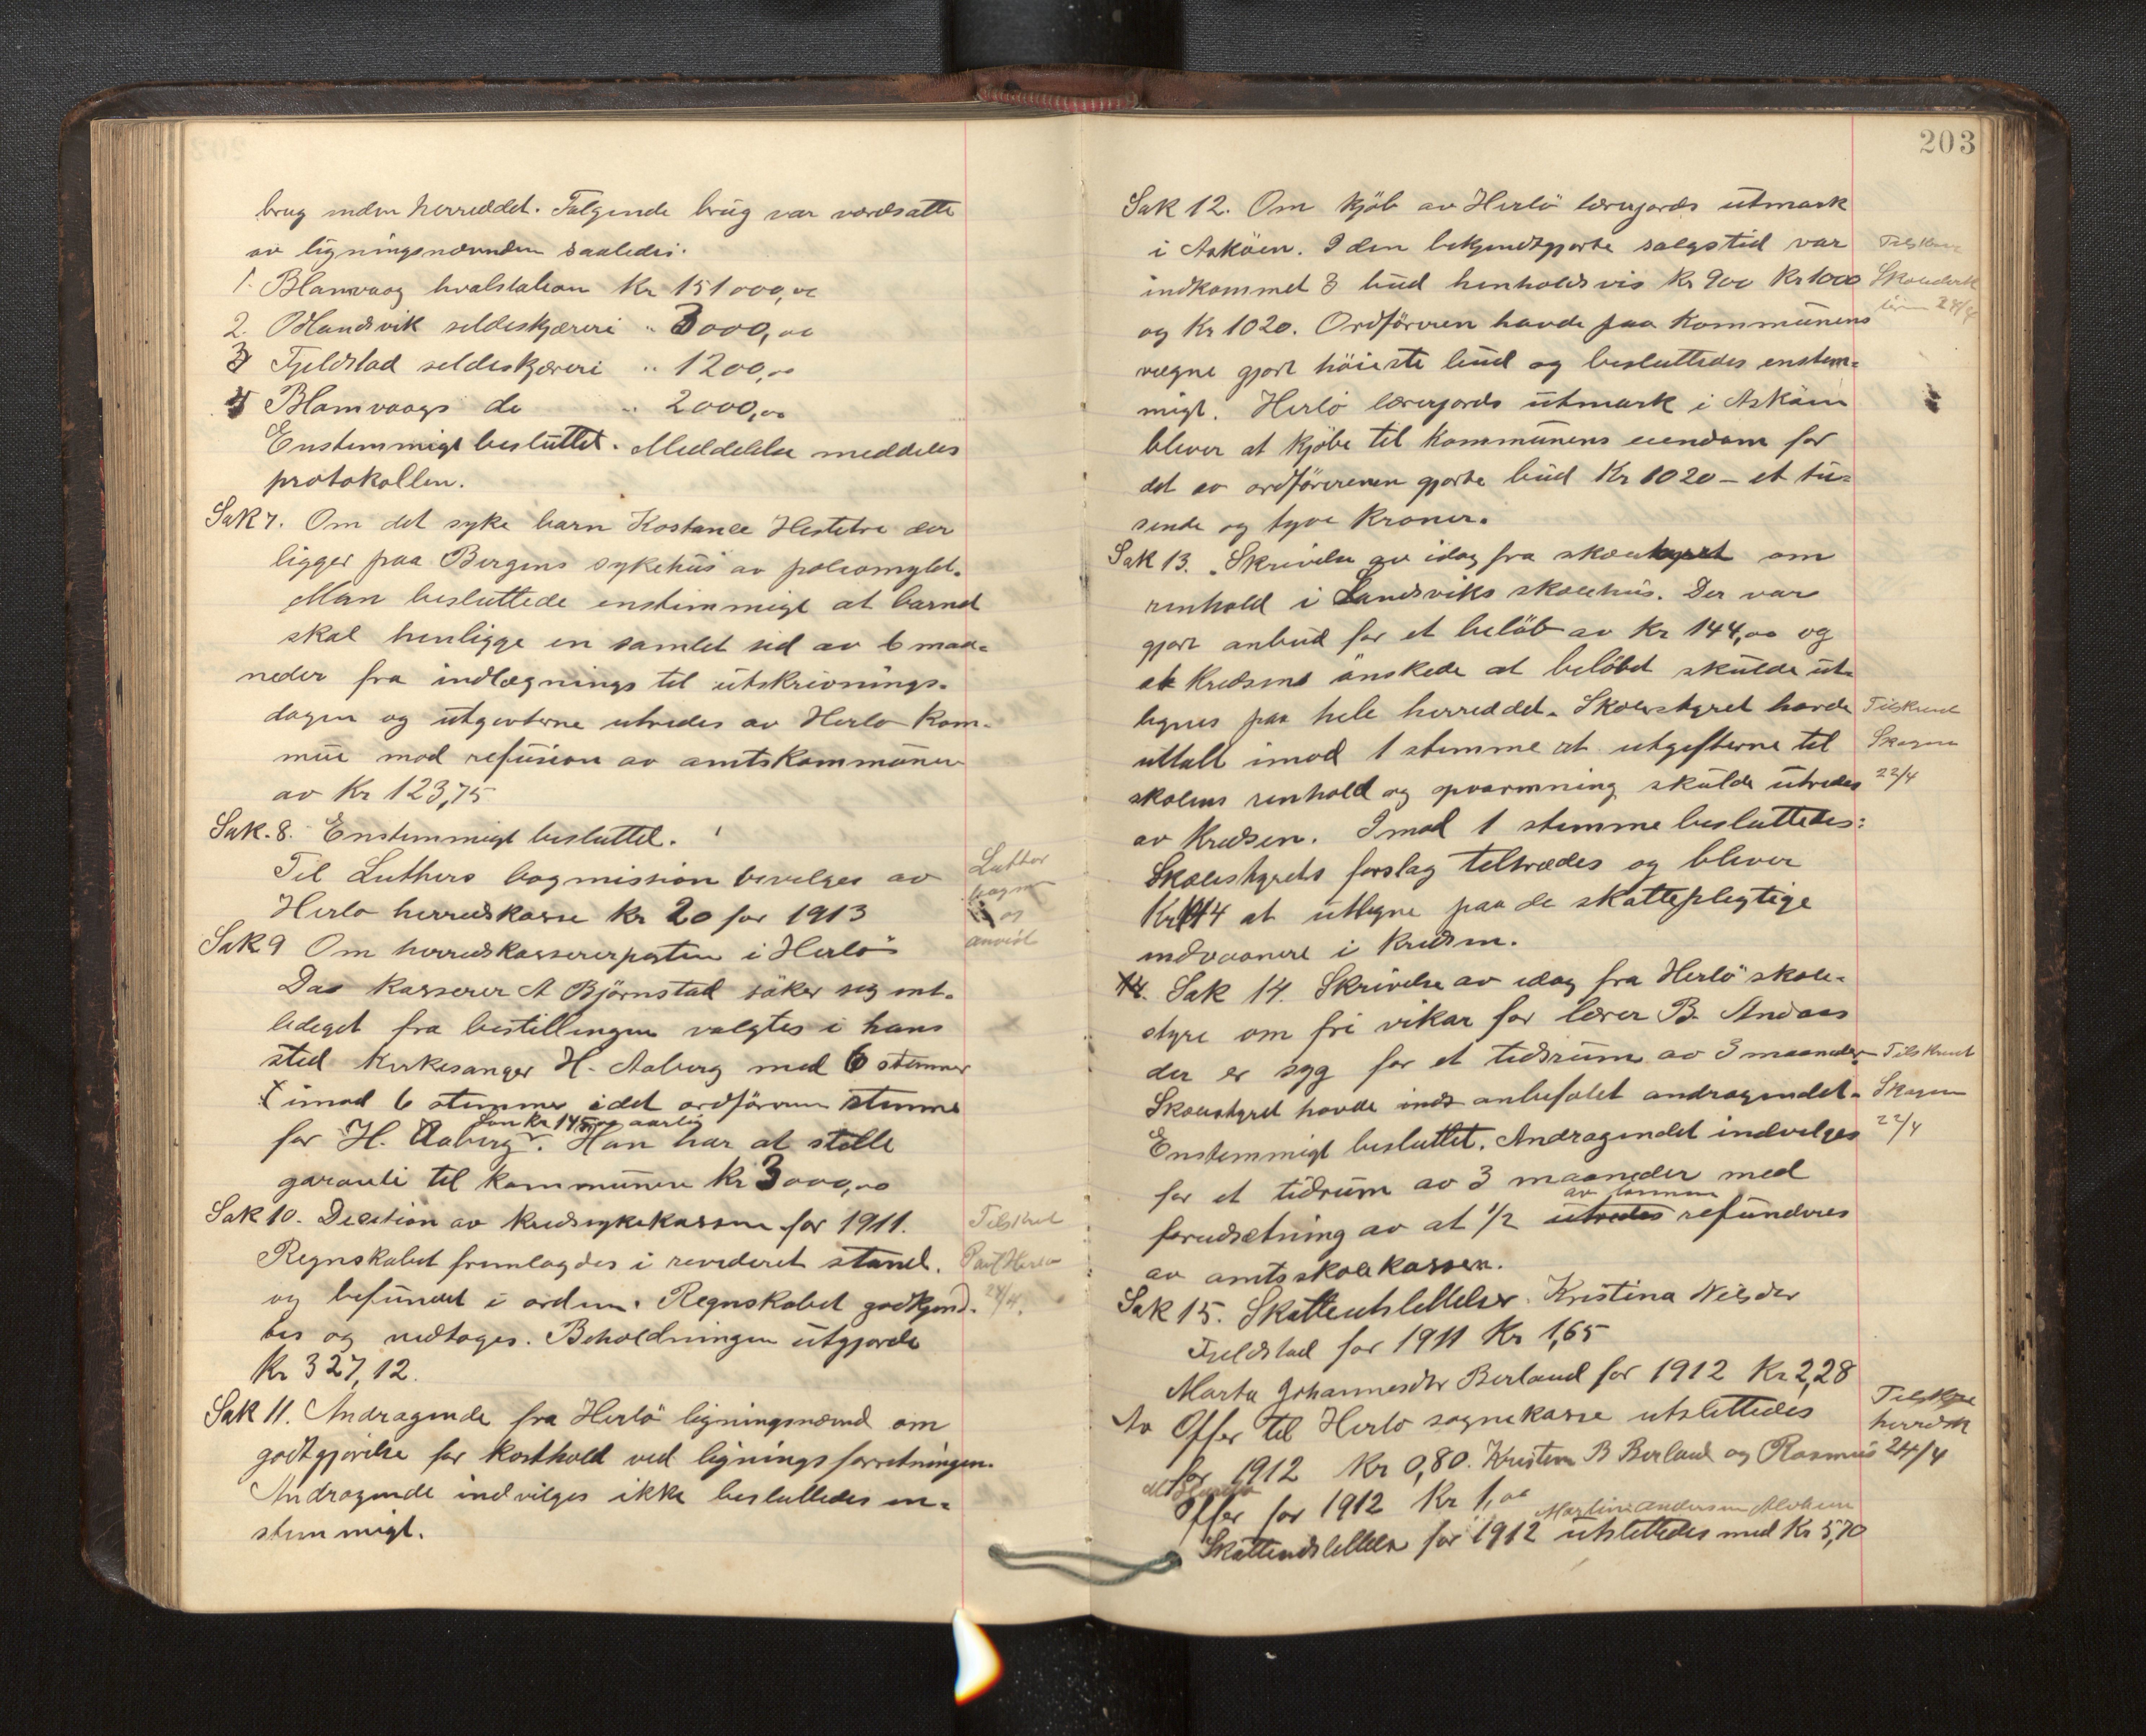 brug inden herreddet. Følgende brug var værdsatte
av ligningsnævnden saaledes:
1. Blamvaag hvalstation Kr 151000,00
2. Odlandsvik sildeskjæreri " 3000,00
3 Fjeldstad sildeskjæreri " 1200,00
4 Blomvaags do " 2000,00
Enstemmigt besluttet. Meddelelse meddeles
protokollen.
Sak 7. Om det syke barn Kostance Hestetre der
ligger paa Bergens sykehus av poliomyld.
Man besluttede enstemmigt at barnet
skal henligge en samlet tid av 6 maa-
neder fra indlægnings til utskrivnings-
dagen og utgivterne utredes av Herlo kom-
mue mod refusion av amtskommunen
av Kr 123,75
Sak. 8. Enstemmigt besluttet.
Til Luthers bogmission bevilges av
Herlo herredskasse kr 20 for 1913
Sak 9 Om herredskassererposten i Herlö
Daa kasserer A Björnstad söker sig ent-
lediget fra bestillingen valgtes i hans
sted kirkesanger H. Aaberg med 6 stemmer
imod 6 stemmer idet ordföreren stemte
Lön Kr 1450,00 aarlig
for H. Aaberg. Han har at stille
garanti til kommunen kr 3000,00
Sak 10. Decition av kredssykekassen for 1911.
Regnskabet fremlagdes i revideret stand.
og befundet i orden. Regnskabet godkjend-
tes og vedtoges. Beholdningen utgjorde
Kr 327,12.
Sak 11. Andragende fra Herlö ligningsnævnd om
godtgjörelse for kosthold ved ligningsforretningen.
Andragende indvilges ikke besluttedes en-
stemmigt.
Luther
bogm
og
anvist
Tilskret
24/4.
203
Sak 12. Om kjöb av Herlö lærerjords utmark
i Asköen. I den bekjendtgjorte salgstid var
indkommet 3 bud henholdsvis Kr 900 Kr 1000
og Kr 1020. Ordföreren havde paa Kommunens
vegne gjort höieste bud og besluttedes enstem-
migt. Herlö lærerjords utmark i Asköen
bliver at kjöbe til Kommunens eiendom for
det av ordföreren gjorte bud Kr 1020 - et tu-
sende og tyve Kroner.
Sak 13. Skrivelse av idag fra skolestyret om
renhold i Landsviks skolehus. Der var
gjort anbud for et belöb av Kr 144,00 og
at Kredsens önskede at belöbet skulde ut-
lignes paa hele herreddet. Skolestyret havde
uttalt imod 1 stemme at utgifterne til
skolens renhold og opvarmning skulde utredes
av Kredsen. Imod 1 stemme besluttedes:
Skolestyrets forslag tiltrædes og bliver
Kr 144 at utligne paa de skattepligtige
indvaanere i Kredsen.
Sak 14. Skrivelse av idag fra Herlö skole-
styre om fri vikar for lærer B. Andaas
der er syg for et tidsrum av 3 maaneder
Skolestyret havde anbefalet andragendet.
Enstemmigt besluttet. Andragendet indvilges
for et tidrum av 3 maaneder med
av lönnen
forudsætning av at 1/2 utredes refunderes
av amtsskolekassen.
Sak 15. Skatteutslettelser. Kristina Nilsdtr
Fjeldstad for 1911 Kr 1,65
Marta Johannesdtr Berland for 1912 Kr 2,28
Av Offer til Herlo sognekasse utslettedes
for 1912 Kr 0,80. Kristen B Berland og Rasmus
Offer for 1912 Kr 1,00
Martin Andersen
Skatteudslettelse for 1912 utslettedes med Kr 5,70
Tilskrevet
24/4
Tilskrevet
22/4
Tilskrevet
22/4
herredsk
24/4